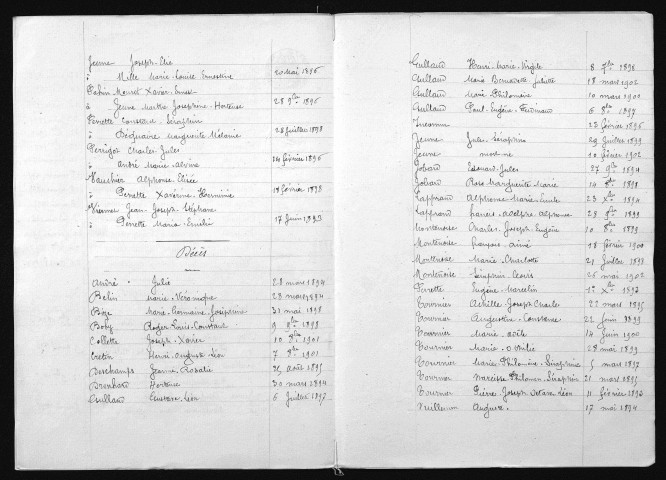 Jeune Joseph-Elie
à Mille Marie-Louise Ernestine 20 mai 1896
Papin Xavier-Ernest
à Jeune Marthe Josephine-Hortense 28 9bre 1896
Penette Constant-Séraphin
à Marguerite Mélanie 28 Juillet 1898
Perrigot Charles Jules
à André Marie-Alvina 24 février 1896
Vauthier Alphonse Elisée
à Penette Xavérine-Herminie 18 février 1898
Viennet Jean-Joseph-Stéphane
à Penette Maria-Emélie 17 Juin
Décès
André Julie 28 mars 1894
Belin Marie-Véronique 23 mars 1894
Marie-Germaine-Josephine 31 mai 1898
Roger-Louis-Constant 9 8bre 1899
Collette Joseph-Xavier 10 8bre 1901
Cretin Henri-Auguste-Léon 7 8bre 1901
Deschamps Jeanne-Rosalie 25 août 1895
Hortense 30 mars 1894
Gulland Gustave-Léon 6 Juillet 1897
Gulland Henri-Marie-Virgile 8 7bre 1898
Gulland Marie Bernadette Juliette 18 mars 1902
Gulland Marie Philomène 10 mars 1901
Gulland Paul-Eugène-Ferdinand 6 8bre 1897
Inconnu 22 février 1896
Jeune Jules-Séraphin 29 Juillet 1899
Jeune mort-né 10 février 1902
Jobard Edouard-Jules 27 9bre 1894
Jobard Rose Marguerite Marie 14 8bre 1898
Lapprand Alphonse-Marie-Emile 23 Xbre 1894
Lapprand Francis-Adolphe-Alphonse 28 9bre 1899
Montenoise Charles-Joseph-Eugène 10 8bre 1899
Montenoise françois-aimé 18 février 1900
Montenoise Marie-Charlotte 21 Juillet 1899
Montenoise Séraphin Louis 26 mai 1902
Penette Eugène-Marcelin 1er Xbre 1897
Tournier Achille-Joseph-Charles 22 mars 1895
Tournier Augustine-Constance 21 Juin 1899
Tournier Marie 14 Juin 1900
Tournier Maria-Othilie 28 mai 1899
Tournier Marie-Philomène-Séraphine 5 mars 1897
Tournier Narcisse-Philomen-Séraphin 21 mars 1895
Tournier Pierre-Joseph-Octave-Léon 11 février 1896
Vuillemin Auguste 17 mai 1894